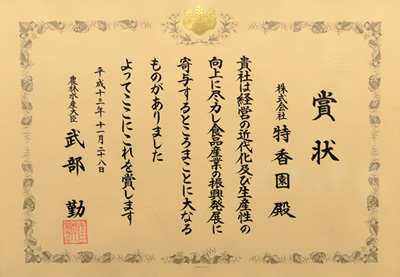 賞状
株式会社 特香園 殿
貴社は経営の近代化及び生産性の
向上に尽力し食品産業の振興発展に
寄与するところまことに大なる
ものがありました
よってここにこれを賞します
平成十三年十一月二十八日
農林水産大臣 武部 勤